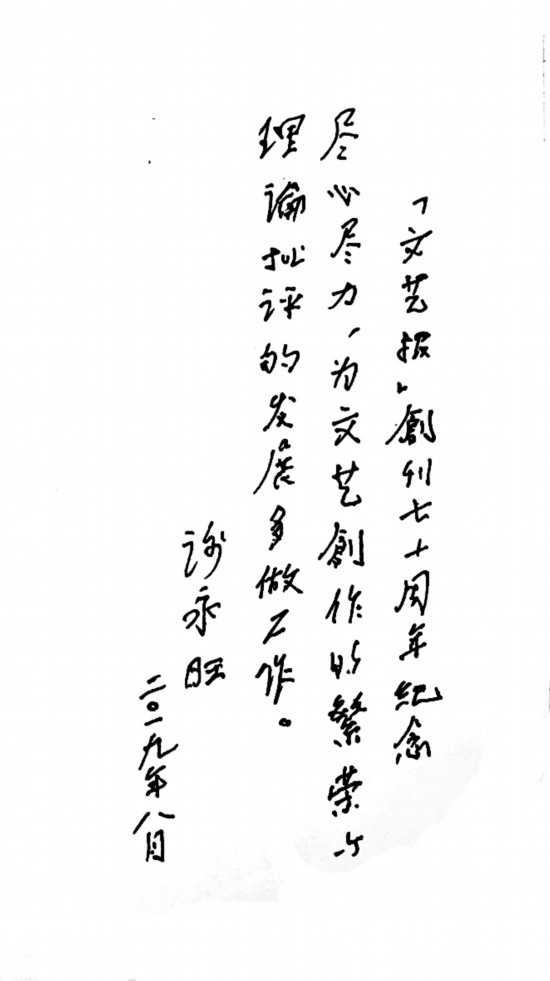 「文艺报」創刊七十周年纪念
尽心尽力，为文艺創作的繁荣与
理論批评的发展多做工作。
谢永旺
二〇一九年八月